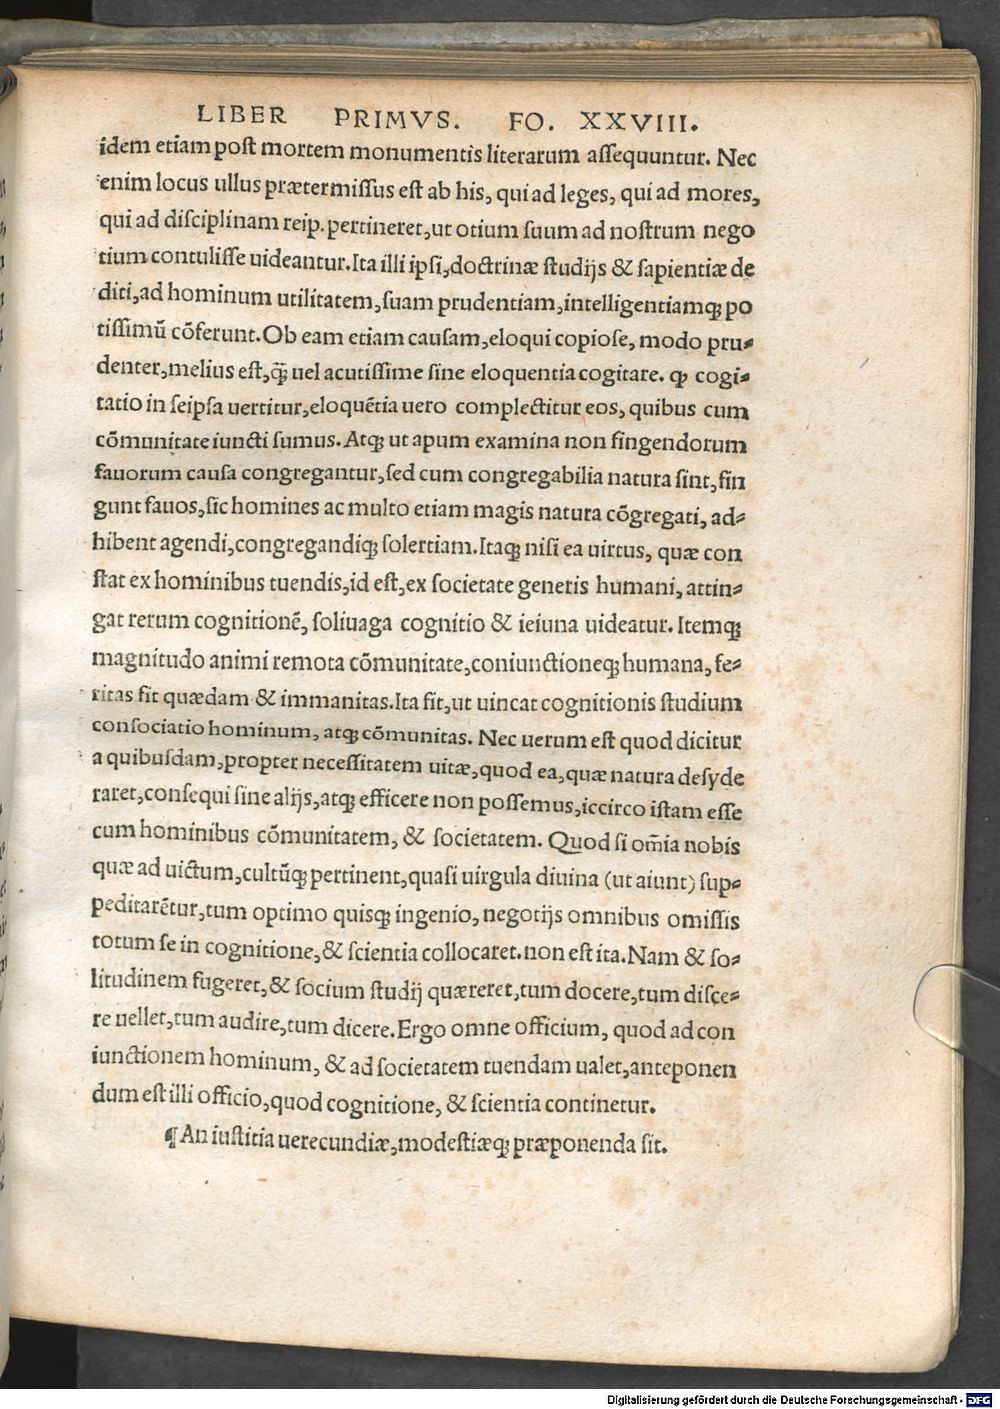 LIBER PRIMVS. FO. XXVIII.
idem etiam post mortem monumentis literarum assequuntur. Nec
enim locus ullus prætermissus est ab his, qui ad leges, qui ad mores,
qui ad disciplinam reip. pertineret, ut otium suum ad nostrum nego
tium contulisse uideantur. Ita illi ipsi, doctrinæ studijs & sapientiæ de
diti, ad hominum utilitatem, suam prudentiam, intelligentiamq; po
tissimũ cõferunt. Ob eam etiam causam, eloqui copiose, modo pru-
denter, melius est, q̃ȝ uel acutissime sine eloquentia cogitare. ꝙ cogi-
tatio in seipsa uertitur, eloquẽtia uero complectitur eos, quibus cum
cõmunitate iuncti sumus. Atq; ut apum examina non fingendorum
fauorum causa congregantur, sed cum congregabilia natura sint, fin
gunt fauos, sic homines ac multo etiam magis natura cõgregati, ad-
hibent agendi, congregandiq; solertiam. Itaq; nisi ea uirtus, quæ con
stat ex hominibus tuendis, id est, ex societate generis humani, attin-
gat rerum cognitionẽ, soliuaga cognitio & ieiuna uideatur. Itemq;
magnitudo animi remota cõmunitate, coniunctioneq; humana, fe-
ritas sit quædam & immanitas. Ita fit, ut uincat cognitionis studium
consociatio hominum, atq; cõmunitas. Nec uerum est quod dicitur
a quibusdam, propter necessitatem uitæ, quod ea, quæ natura desyde
raret, consequi sine alijs, atq; efficere non possemus, iccirco istam esse
cum hominibus cõmunitatem, & societatem. Quod si om̃ia nobis
quæ ad uictum, cultũq; pertinent, quasi uirgula diuina (ut aiunt) sup-
peditarẽtur, tum optimo quisq; ingenio, negotijs omnibus omissis
totum se in cognitione, & scientia collocaret. non est ita. Nam & so-
litudinem fugeret, & socium studij quæreret, tum docere, tum disce-
re uellet, tum audire, tum dicere. Ergo omne officium, quod ad con
iunctionem hominum, & ad societatem tuendam ualet, anteponen
dum est illi officio, quod cognitione, & scientia continetur.
¶ An iustitia uerecundiæ, modestiæq; præponenda sit.
Digitalisierung gefördert durch die Deutsche Forschungsgemeinschaft - DFG